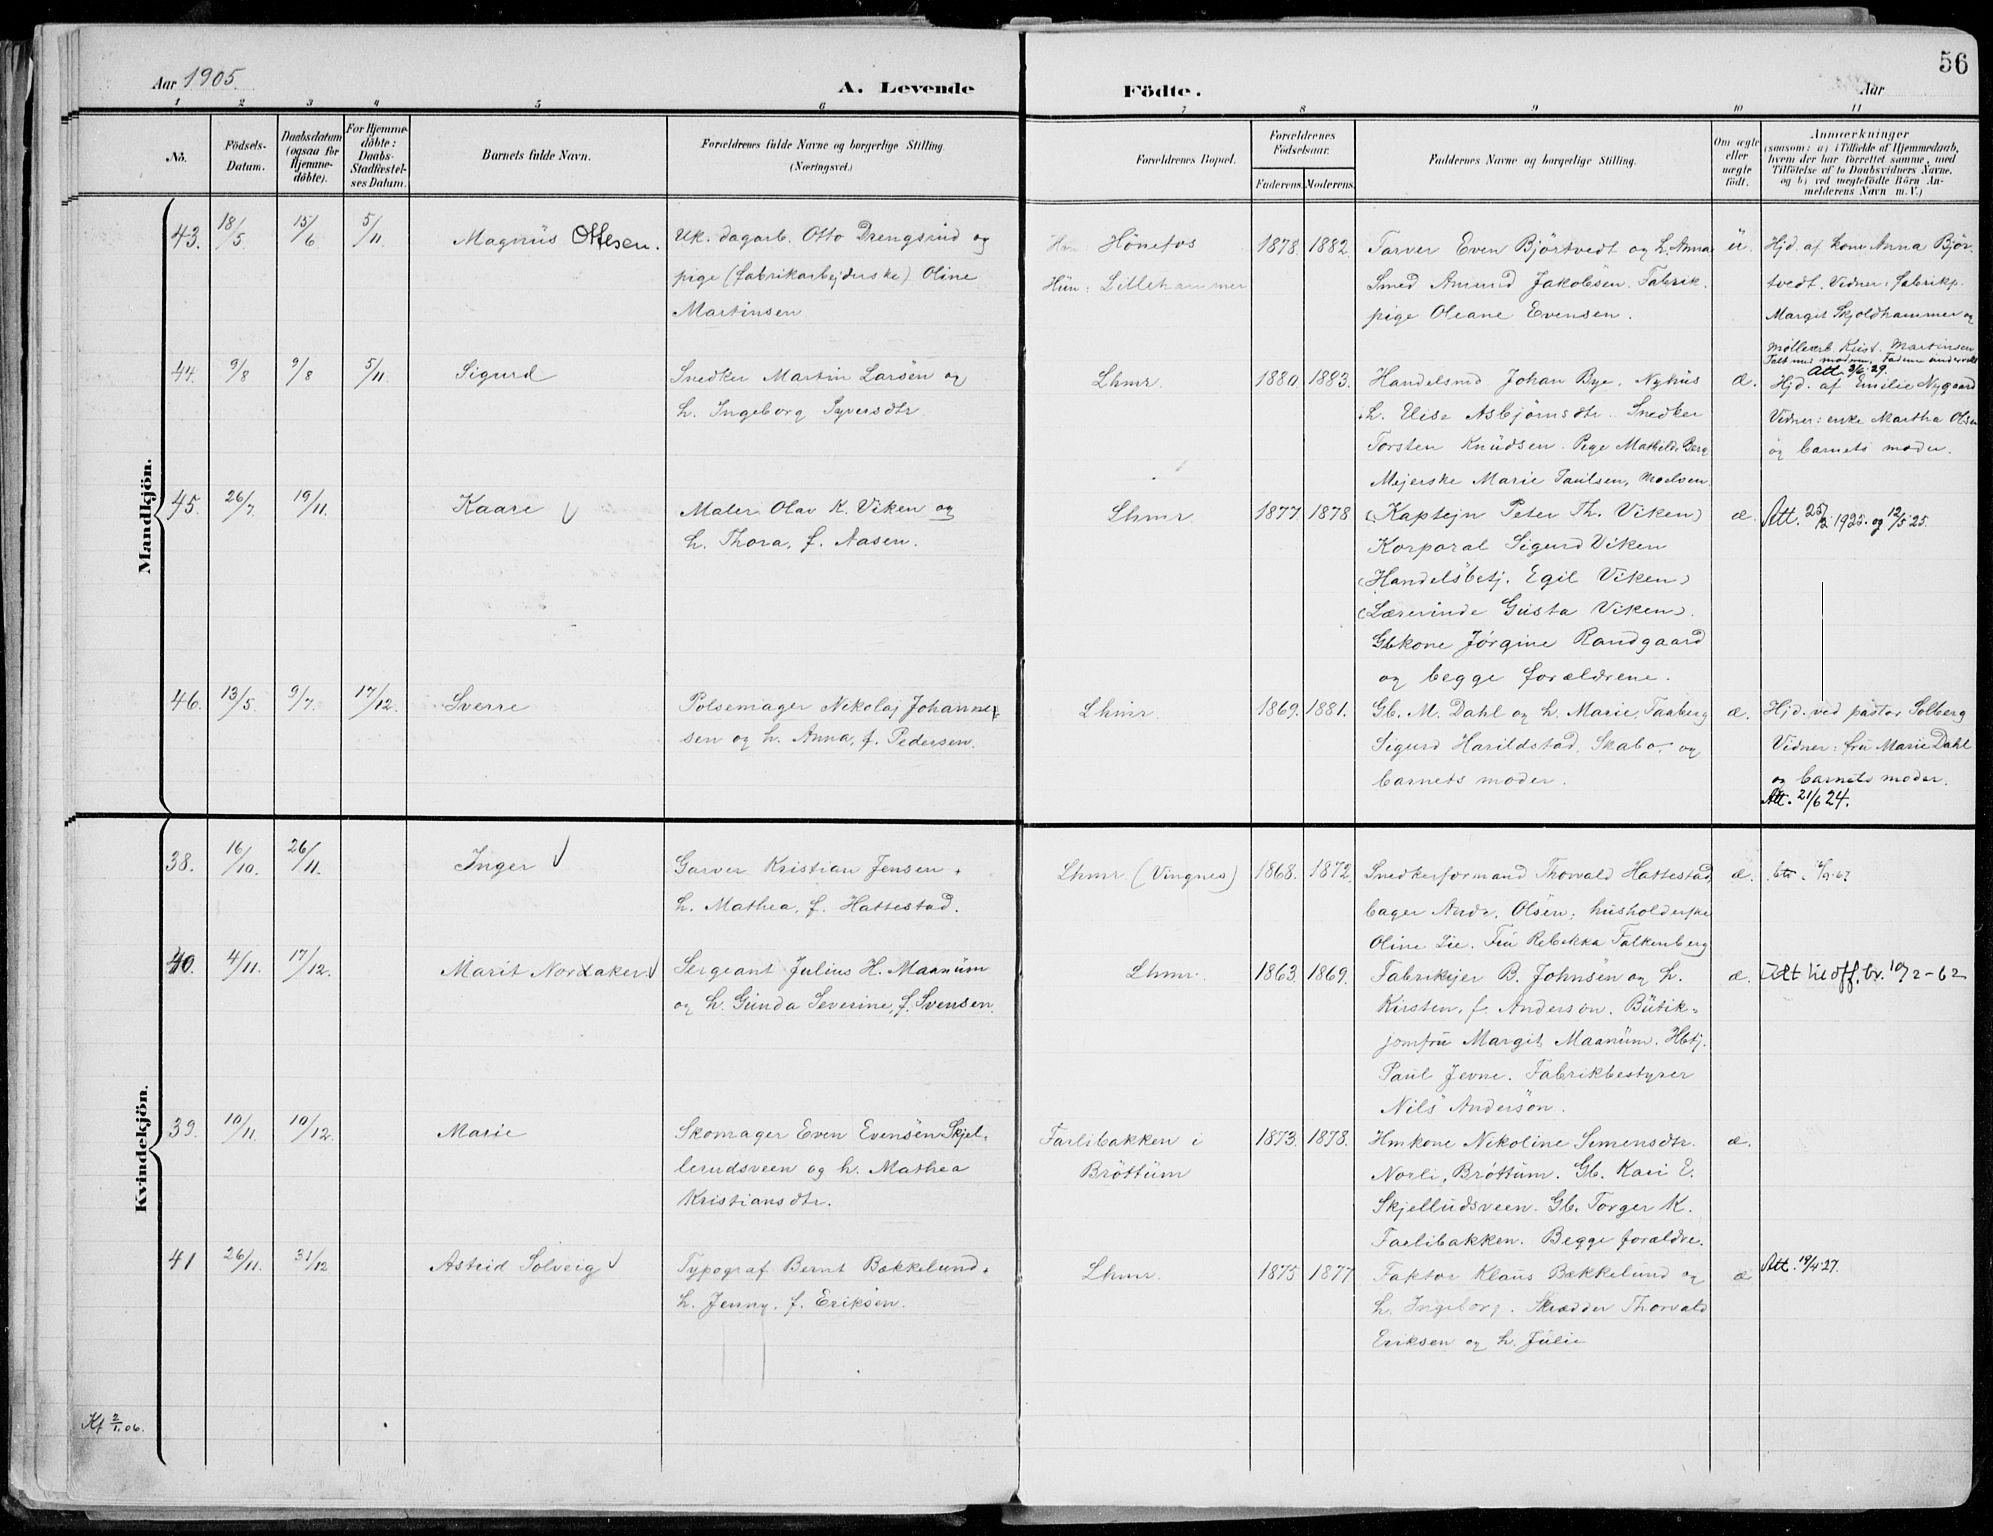 56
Aar 1905.
A. Levende
Födte.
Aar
1 2 3 4 5 6 7 8 9 10 11
No.
Födsels-
Datum.
Daabsdatum
(ogsaa for
Hjemme-
döbte).
For Hjemme-
döbte:
Daabs-
Stadfæstel-
ses Datum.
Barnets fulde Navn.
Forældrenes fulde Navne og borgerlige Stilling.
(Næringsvei.)
Forældrenes Bopæl.
Forældrenes
Födselsaar.
Faderens. Moderens.
Faddernes Navne og borgerlige Stilling.
Om ægte
eller
uægte
født.
Anmærkninger
(saasom: a) i Tilfælde af Hjemmedaab,
hvem der har forrettet samme, med
Tilföielse af to Daabsvidners Navne.
og b) ved uægtefödte Börn An-
melderens Navn m. V.)
Mandkjön.
43. 18/5 15/6 5/11 Magnus Ottesen.
Uk. dagarb. Otto Drengsrud og
pige (fabrikarbejderske) Oline
Martinsen
Hönefos
Hun: Lillehammer
1878. 1882.
Garver Even Björtvedt og h. Anna
Smed Amund Jakobsen. Fabrik-
pige Oleane Evensen.
u.
Hjd. af kone Anna Bjør-
tvedt. Vidner: fabrikp.
Margit Skjoldhammer og
Møllearb. Krist. Martinsen
Att. 3/6 29.
44. 9/8 9/8 5/11 Sigurd
Snedker Martin Larsen og
h. Ingeborg Syversdtr.
Lhmr.
1880. 1883.
Handelsmd Johan Bye, Nyhus
h. Elise Asbjørnsdtr. Snedker
Torsten Knudsen. Pige Mathilde Berg
Mejerske Marie Paulsen, Moelven.
æ.
Hjd. af Emilie Nygaard
Vidner: enke Martha Olsen
og barnets moder.
45. 26/7 19/11 Kaare
Maler Olav K. Viken og
h. Thora, f. Aasen.
Lhmr
1877. 1878
(Kaptejn Peter Th. Viken)
Korporal Sigurd Viken
(Handelsbetj. Egil Viken)
(Lærerinde Gusta Viken).
Gbkone Jørgine Randgaard
og begge forældrene.
æ.
Att. 25/2 1925. og 12/5 25.
46. 13/5 9/7. 17/12. Sverre
Pølsemager Nikolaj Johanne-
sen og h. Anna, f. Pedersen.
Lhmr.
1869. 1881.
Gb. M. Dahl og h. Marie, Faaberg
Sigurd Harildstad, Skabo, og
barnets moder.
æ.
Hjd. ved pastor Solberg
Vidner: fru Marie Dahl
og barnets moder.
Att. 21/6 24.
Kvindekjön.
38. 16/10. 26/11. Inger
Garver Kristian Jensen
h. Mathea, f. Hattestad.
Lhmr (Vingnes)
1868. 1872.
Snedkerformand Thorvald Hattestad,
bager Andr. Olsen, husholderske
Oline Lie. Fru Rebekka Falkenberg
æ.
40. 4/11. 17/12. Marit Nordaker
Sergeant Julius H. Maanum
og h. Gunda Severine, f. Svensen.
Lhmr.
1863. 1869.
Fabrikejer B. Johnsen og h.
Kirsten, f. Anderson. Butik-
jomfru Margit Maanum. Hbtj.
Paul Jevne. Fabrikbestyrer
Nils Anderson.
æ.
39. 10/11. 10/12. Marie
Skomager Even Evensen Skjel-
lerudsveen og h. Mathea
Kristiansdtr.
Farlibakken i
Brøttum
1873. 1878.
Hmkone Nikoline Simensdtr.
Norli, Brøttum. Gb. Kari E.
Skjelludsveen. Gb. Torger K.
Farlibakken. Begge forældre.
æ.
41 26/11. 31/12 Astrid Solveig
Typograf Bernt Bækkelund
h. Jenny, f. Eriksen.
Lhmr.
1875 1877
Faktor Klaus Bækkelund og
h. Ingeborg. Skrædder Thorvald
Eriksen og h. Julie
æ
Att. 19/4 27.
Kf 2/1.06.